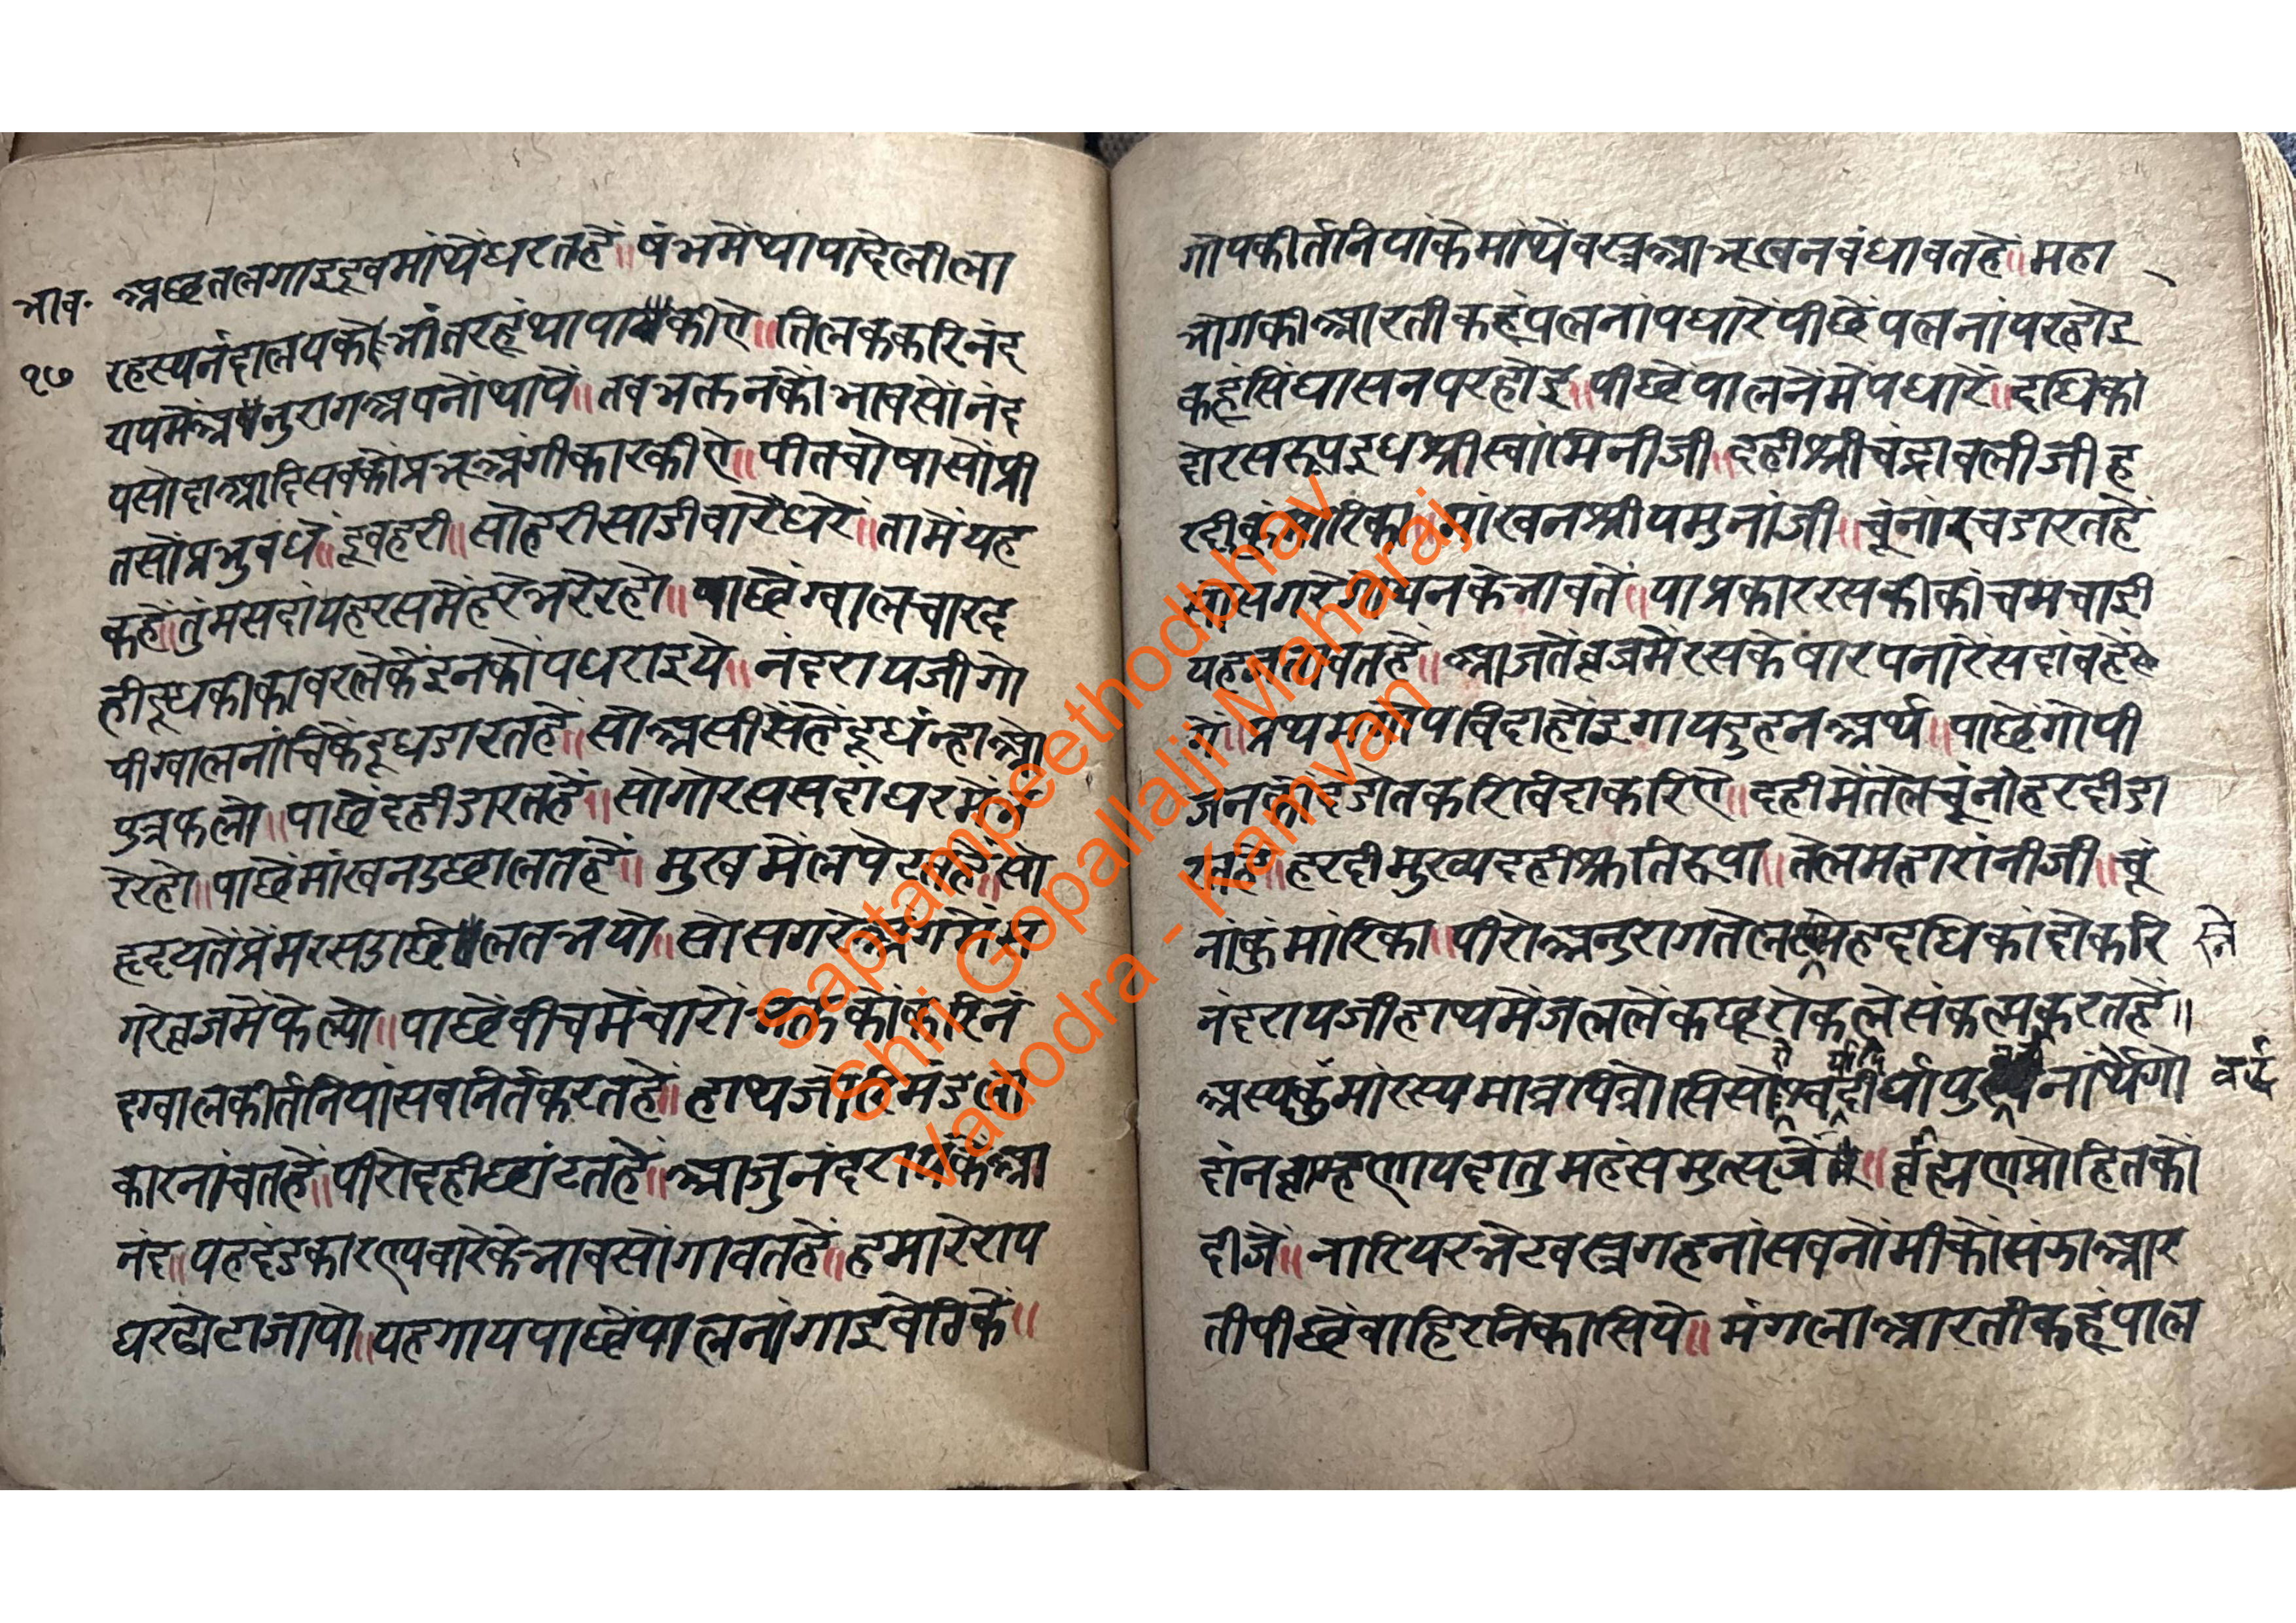 भाव॰
१७
अछतलगाइइवमांथेंधरतहें॥षंभमेंथापादेलीला
रहस्यनंदालयकोभीतरहूंथापाकीए॥तिलककरिनंद
यपमेंअनुरागअपनोंथापें॥तवभक्तनकोंभावसोंनंद
यसोदाआदिसवकोंप्रभूअंगीकारकीए॥पीतवोषासोंप्री
तसोंप्रभुवंधे॥दूवहरी॥सोहरीसाडीवारेंधरें॥तामेंयह
कहें॥तुंमसदांयहरसमेंहरेभरेरहो॥पाछेंग्वालचारद
हीदूधकीकावरलेकेंइनकोंपधराइये॥नंदरायजीगो
पीग्वालनांचिकेंदूधडारतहें॥सोअसीसतहेंदूधंन्हाओ
पुत्रफलो॥पाछेंदहीडारतहें॥सोगोरससदांघरमें
रेरहो॥पाछेंमांखनउछालतहें॥मुखमेंलपेटतहें॥सो
हृदयतेंप्रेमरसउछलतभयो॥सोसगरेअंगमेंस
गरेव्रजमेंफेल्यो॥पाछेंवीचमेंचारोंभक्तकोंकरिनं
दग्वालकीर्तनियांसवनिर्तकरतहें॥हाथजोरिमंडला
कारनांचतहें॥पीरोदहीछांटतहें॥आजुनंदरायकेंआ
नंद॥यहदंडकारएयवारेकेभावसोंगावतहें॥हमारेराय
घरढोटाजायो॥यहगायपाछेंपालनांगाइवेठिकें॥
गोपकीर्तनियांकेमांथेंवस्त्रआभूखनवंधावतहें॥महा
भोगकीआरतीकहूंपलनांपधारेंपीछेंपलनांपरहोइ
कहूंसिंघासनपरहोइ॥पीछेंपालनेंमेंपधारें॥दधिकां
दोरसरूपइधश्रीस्वांमिनीजी॥दहीश्रीचंद्रावलीजीह
रदीकुंमारिका॥मांखनश्रीयमुनांजी॥चूंनांरचडारतहें
सोसगरेगोपनकेभावतें॥याप्रकाररसकीकींचमचाडी
यहजतावतहें॥आजतेंव्रजमेंरसकेषारपनारेंसदांवहें
गे॥प्रथमगोपविदाहोंइगायदुहनअर्थ॥पाछेंगोपी
जनकोंदंडोतकरिविदाकरिए॥दहीमेंतेलचूंनांहरदीडा
रतहें॥हरदीमुख्यदहीश्रुतिरूपा॥तेलमहारांनीजी॥चूं
नांकुंमारिका॥पीरोअनुरागतेलस्नेहदधिकांदोकरि
नंदरायजीहाथमेंजललेंकछूरोकलेसंकल्पकरतहें॥
अस्यकुंमारस्यमात्रपित्रोसिसोश्चदीर्घापुनार्थेंगो
दांनव्राम्हणायदातुमहंसमुत्सृजे॥व्रह्मणप्रोहितकों
दीजें॥नारियरभेटवस्त्रगहनांसवनोंमीकोंसंझाआर
तीपीछेंवाहिरनिकासिये॥मंगलाआरतीकहूंपाल
स्ने
वर्द्ध
Saptampeethodbhav
Shri Gopallalji Maharaj
Vadodra - Kamvan